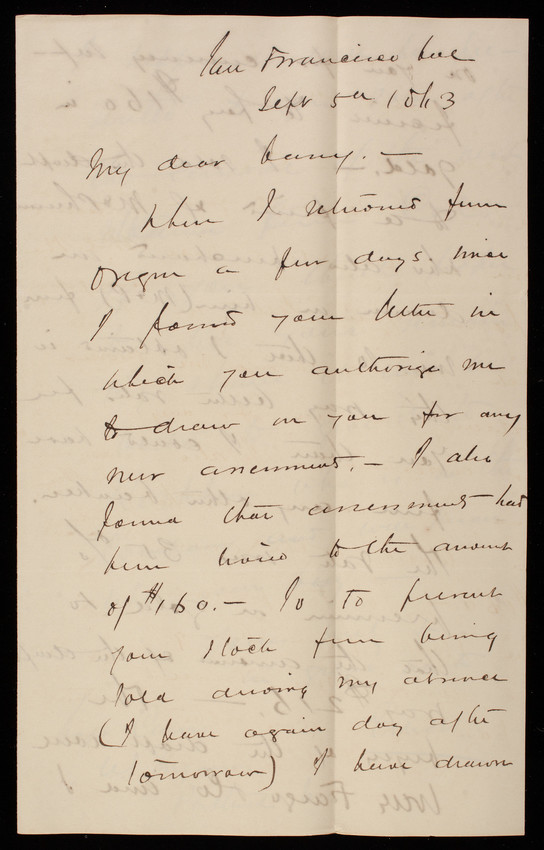 San Francisco Cal
Sept 5th 1863
My dear Casey. —
When I returned from
Oregon a few days since
I found your letter in
which you authorize me
to draw on you for any
new assessment. — I also
found that assessments had
been levied to the amount
of $160. — So to prevent
your stock from being
sold during my absence
(I leave again day after
tomorrow) I have drawn